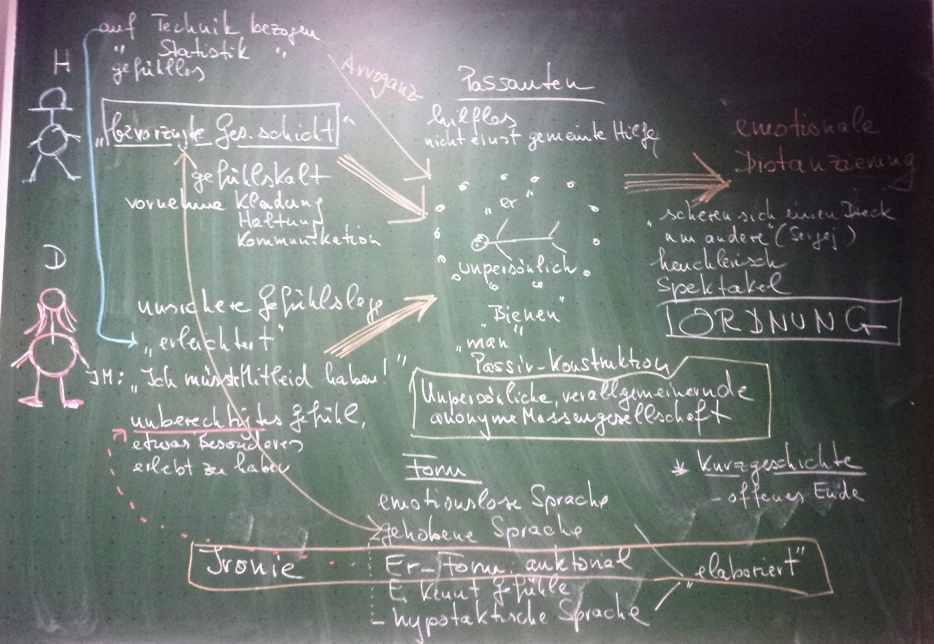 H
auf Technik bezogen
" Statistik "
gefühllos
Arroganz
"bevorzugte Ges.schicht"
gefühlskalt
vornehme Kleidung
Haltung
Kommunikation
Passanten
hilflos
nicht ernst gemeinte Hilfe
"er"
unpersönlich
"Bienen"
"man"
Passiv-Konstruktion
Unpersönliche, verallgemeinernde
anonyme Massengesellschaft
emotionale
Distanzierung
"scheren sich einen Dreck
um andere" (Sergej)
heuchlerisch
Spektakel
ORDNUNG
D
unsichere Gefühlslage
"erleichtert"
IM: "Ich müsste Mitleid haben!"
unberechtigtes Gefühl,
etwas Besonderes
erlebt zu haben
Form
emotionslose Sprache
gehobene Sprache
Ironie
Er-Form, auktorial
E. kennt Gefühle
- hypotaktische Sprache
"elaboriert"
* Kurzgeschichte
- offenes Ende